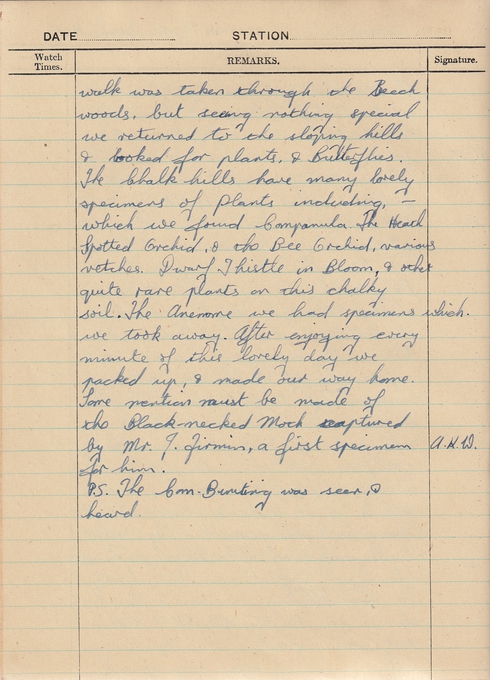 DATE STATION
Watch Times. REMARKS. Signature.
walk was taken through the Beech
woods, but seeing nothing special
we returned to the sloping hills
& looked for plants, & Butterflies.
The Chalk hills have many lovely
specimens of Plants including, –
which we found Campanula. The Heath
Spotted Orchid, & the Bee Orchid, various
vetches. Dwarf Thistle in Bloom, & other
quite rare plants on this chalky
soil. The Anenome we had specimens which.
we took away. After enjoying every
minute of this lovely day we
packed up, & made our way home.
Some mention must be made of
the Black-necked Moth captured
by Mr. J. Firmin, a first specimen A.K.W.
for him.
P.S. The Corn. Bunting was seen, &
heard.